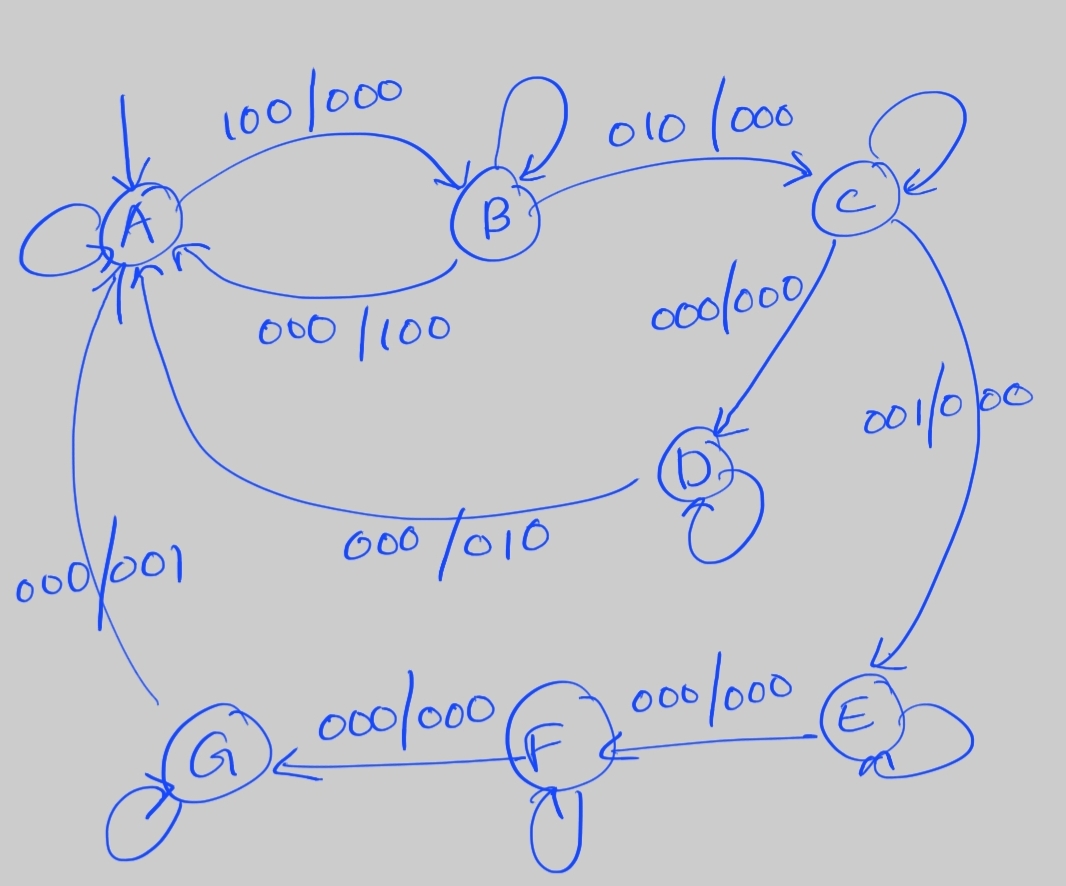 100/000
010/000
A
B
C
000/100
000/000
001/000
D
000/010
000/001
000/000
000/000
E
F
G